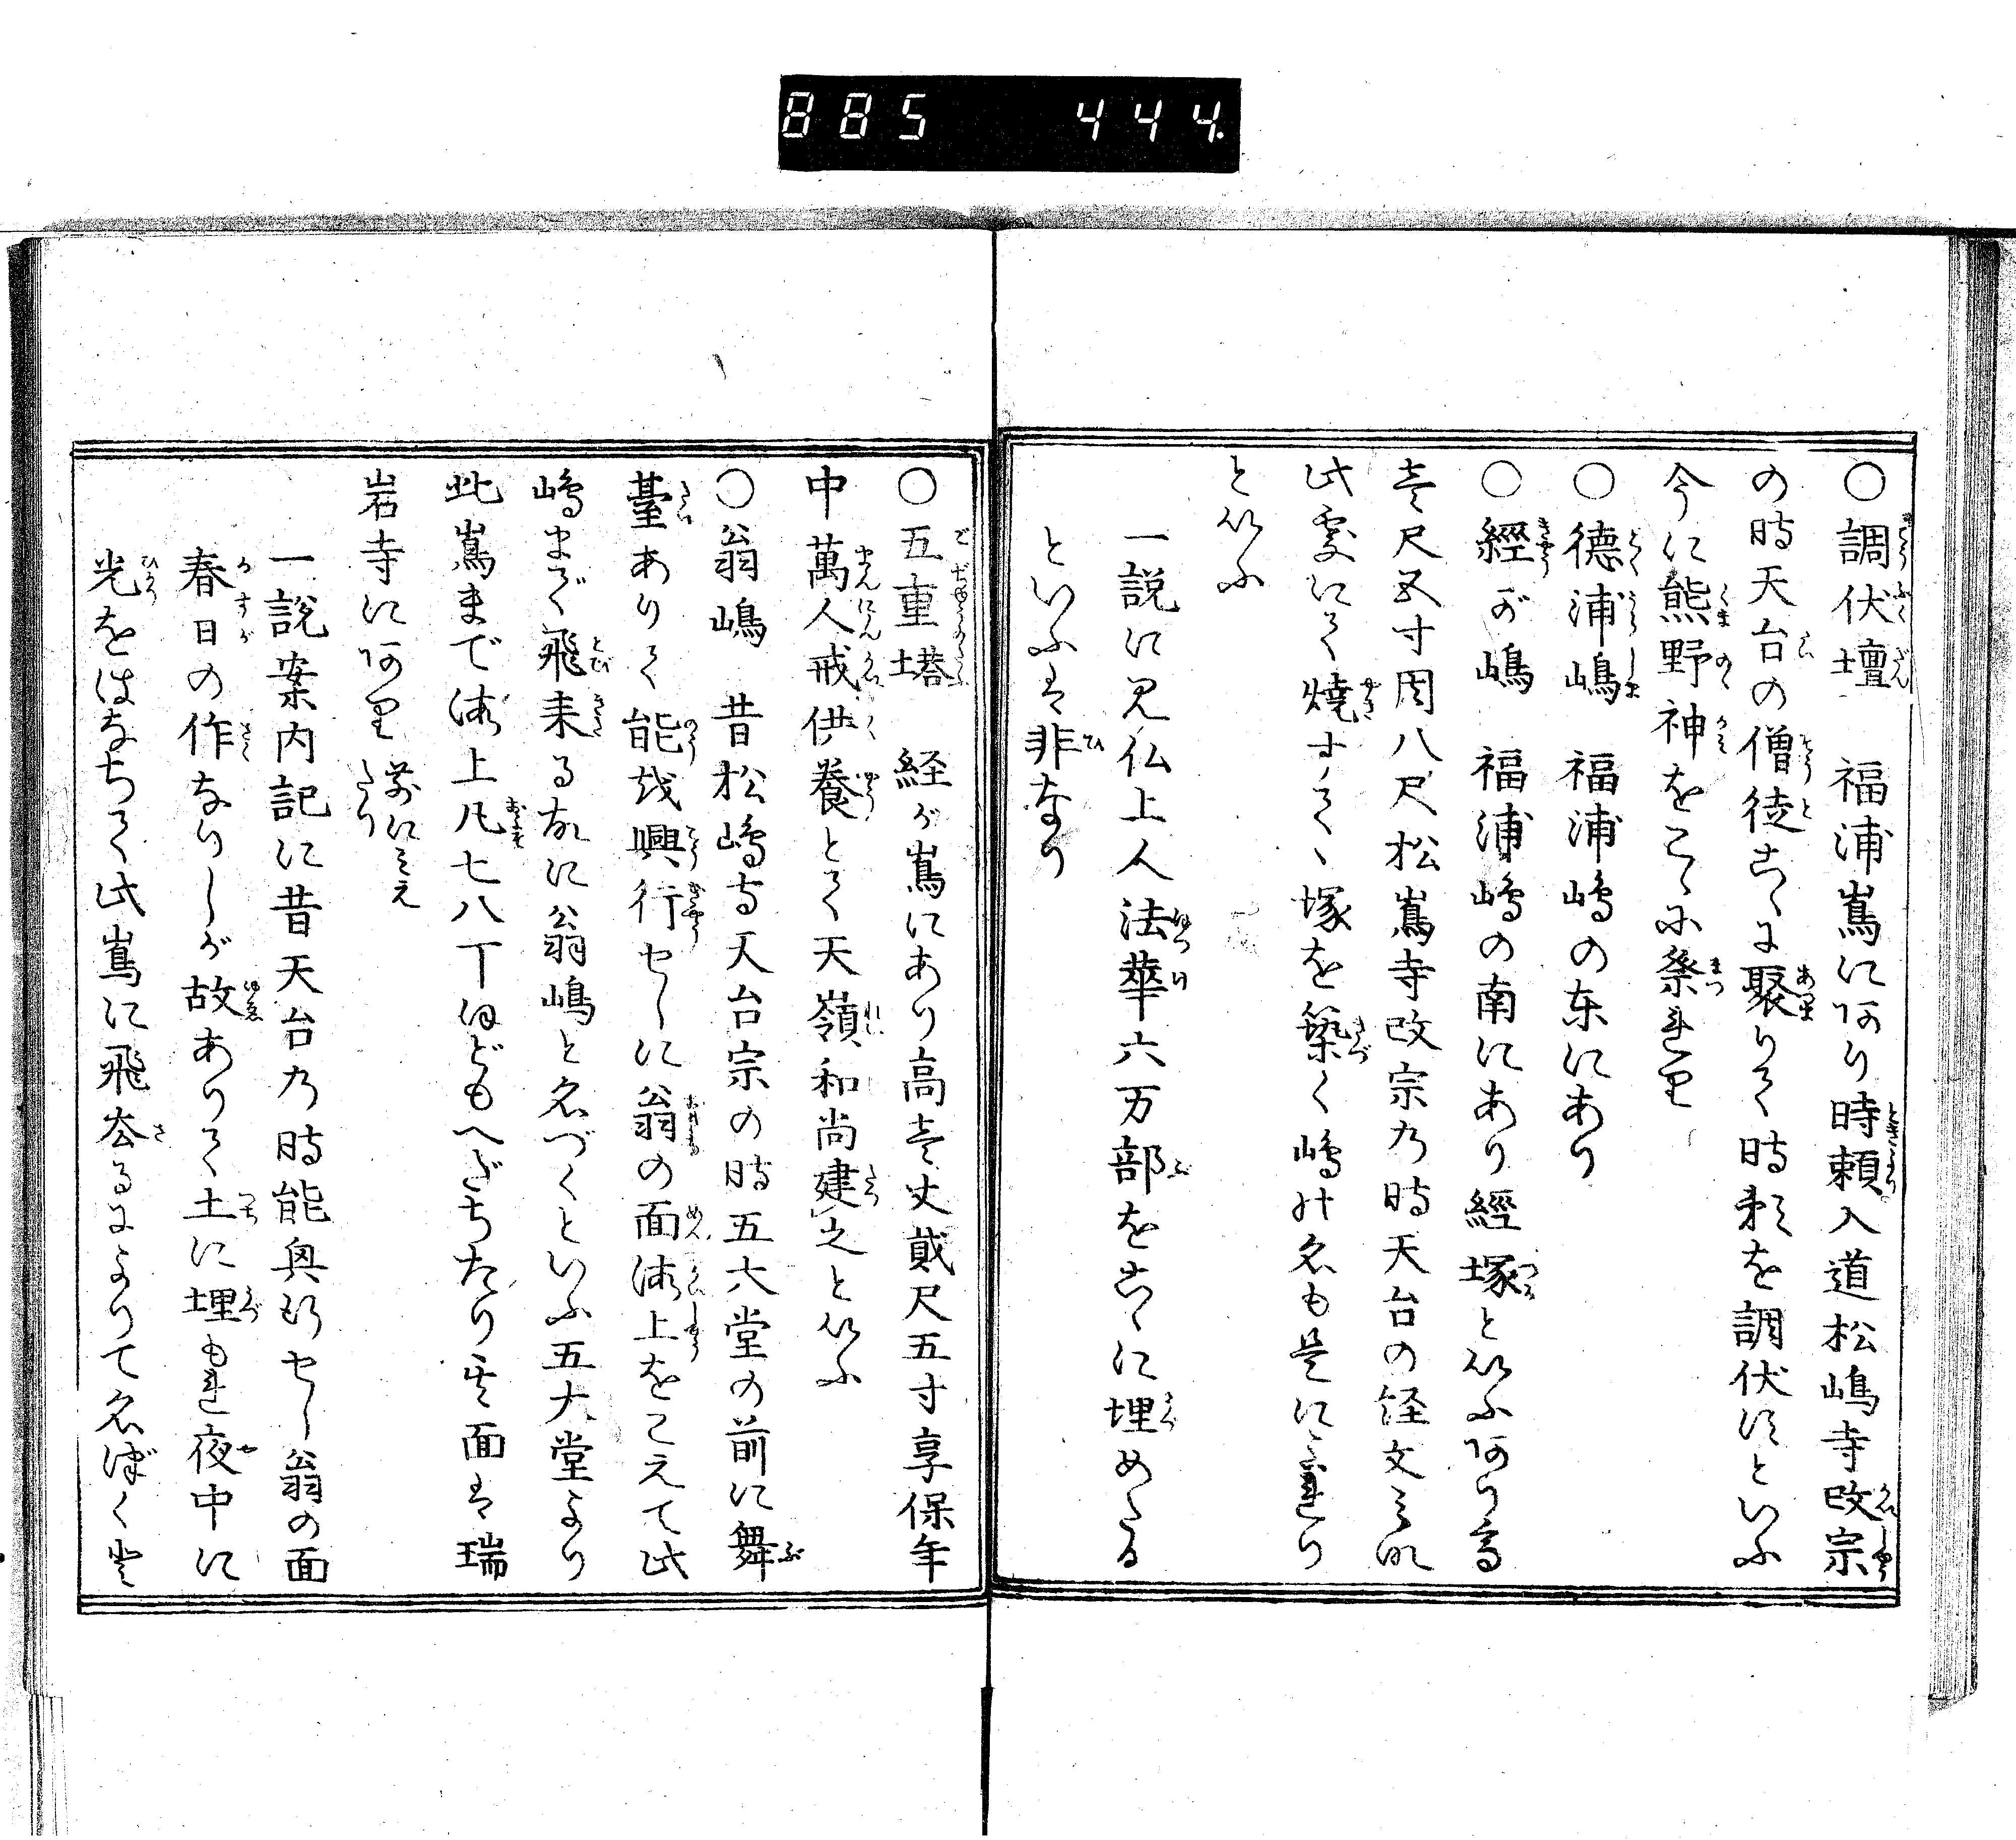 885 444.
○調伏壇 福浦嶌にあり時頼入道松嶋寺改宗
の時天台の僧徒こゝに聚りて時頼を調伏すといふ
今に熊野神をこゝに祭れり
○德浦嶋 福浦嶋の东にあり
○經が嶋 福浦嶋の南にあり經塚といふあり高
壱尺五寸周八尺松嶌寺改宗乃時天台の経文こと〴〵
此處にて焼すてゝ塚を築く嶋の名も是に
といふ
一説に見仏上人法華六万部をこゝに埋めたる
といふは非なり
○五重塔 経が嶌にあり高壱丈貳尺五寸享保年
中萬人戒供養とて天嶺和尚建之といふ
○翁嶋 昔松嶋寺天台宗の時五大堂の前に舞
臺ありて能を興行せしに翁の面海上をこえて此
嶋まで飛来る故に翁嶋と名づくといふ五大堂より
此嶌まで海上凡七八丁ほどもへだちたり其面は瑞
岩寺にあり 前にみえたり
一説案内記に昔天台乃時能興行せし翁の面
春日の作なりしが故ありて土に埋もれ夜中に
光をはなちて此嶌に飛去るによりて名づくと